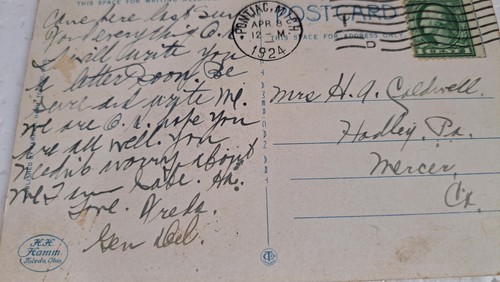 THIS SPACE FOR WRITING
Came here last Sun
for everything O.K.
I will write you
a letter soon. Be
sure and write me.
we are O.K. hope you
are all well. You
Needn't worry about
me I am safe. Ha.
Love. Vreda.
Gen Del.
H.H.
Hamm
Toledo, Ohio
PONTIAC, MICH.
APR 8
12-M
1924
D
POST CARD
THIS SPACE FOR ADDRESS ONLY
Mrs H. A. Caldwell.
Hadley, Pa.
Mercer,
Co.